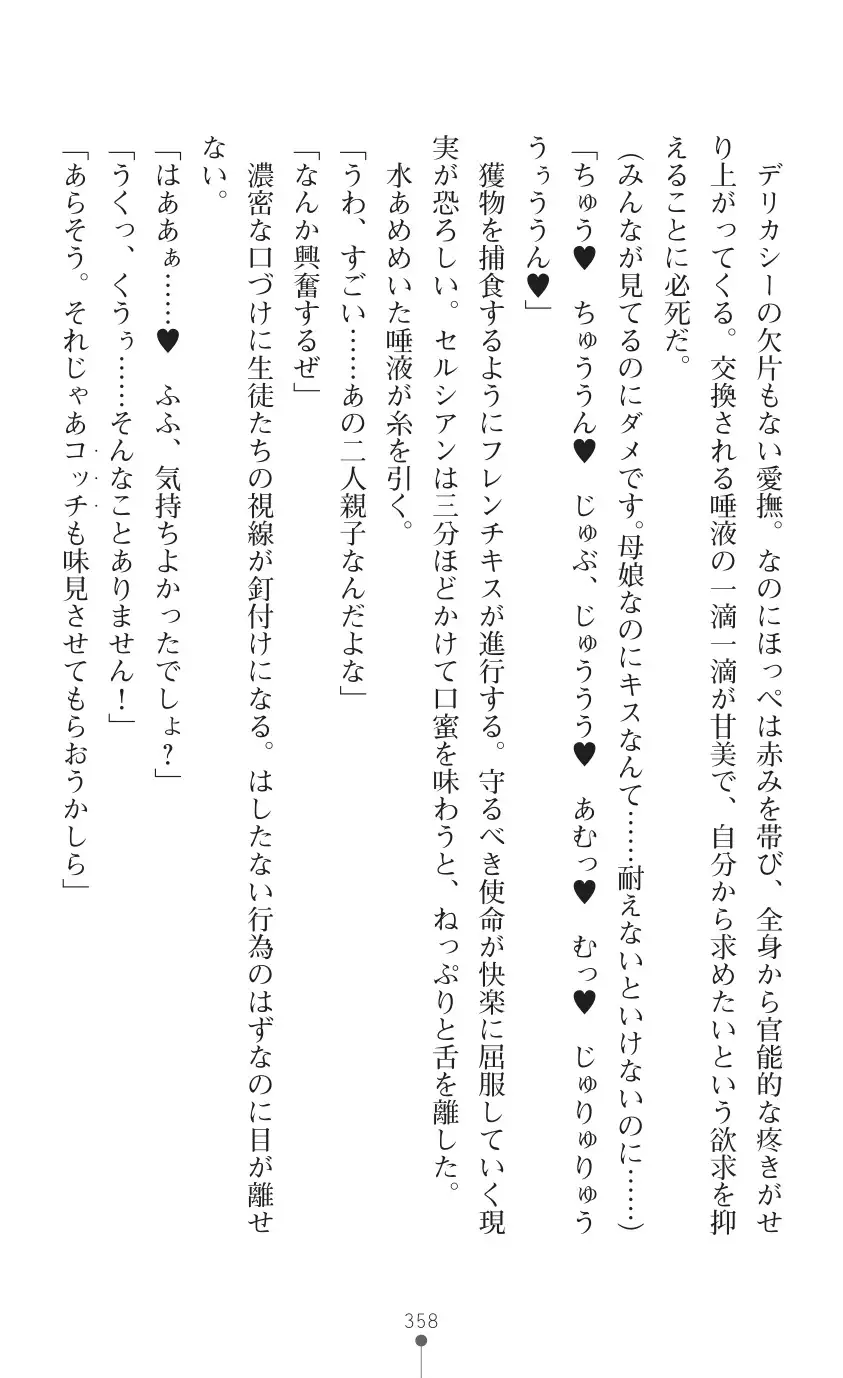 デリカシーの欠片もない愛撫。なのにほっぺは赤みを帯び、全身から官能的な疼きがせ
り上がってくる。交換される唾液の一滴一滴が甘美で、自分から求めたいという欲求を抑
えることに必死だ。
(みんなが見てるのにダメです。母娘なのにキスなんて……耐えないといけないのに……)
「ちゅう♥　ちゅううん♥　じゅぶ、じゅううう♥　あむっ♥　むっ♥　じゅりゅりゅう
うぅううん♥」
獲物を捕食するようにフレンチキスが進行する。守るべき使命が快楽に屈服していく現
実が恐ろしい。セルシアンは三分ほどかけて口蜜を味わうと、ねっぷりと舌を離した。
水あめめいた唾液が糸を引く。
「うわ、すごい……あの二人親子なんだよな」
「なんか興奮するぜ」
濃密な口づけに生徒たちの視線が釘付けになる。はしたない行為のはずなのに目が離せ
ない。
「はああぁ……♥　ふふ、気持ちよかったでしょ?」
「うくっ、くうぅ……そんなことありません!」
「あらそう。それじゃあコッチも味見させてもらおうかしら」
358